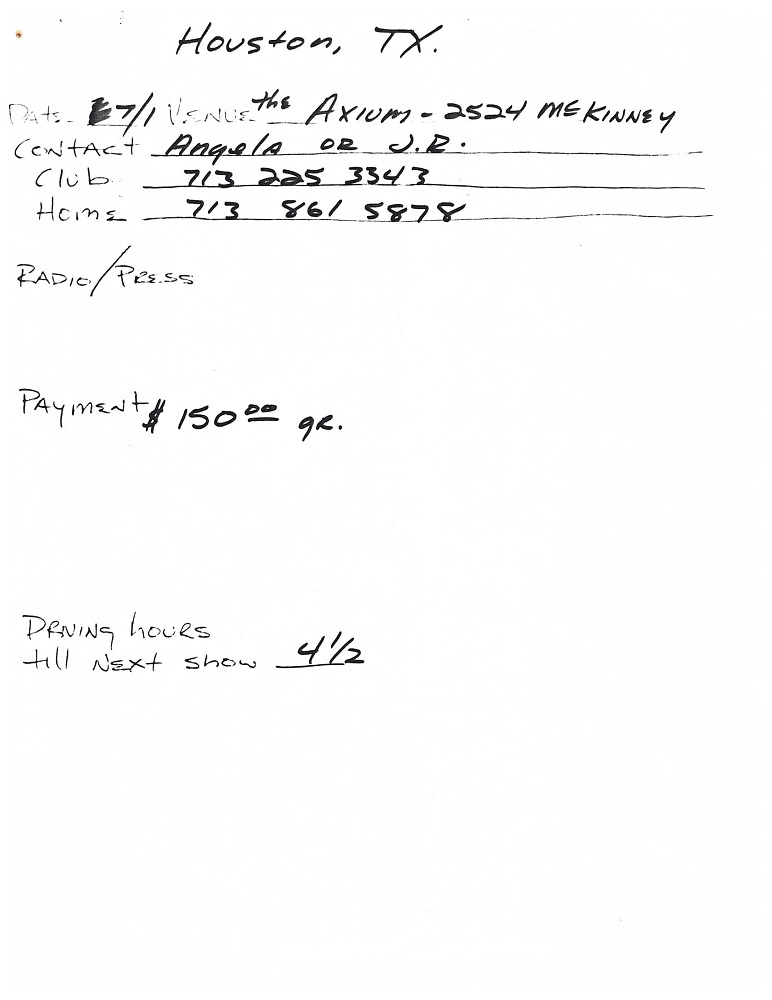 Houston, TX.
Date 7/1 Venue the Axium - 2524 McKinney
Contact Angela or J.R.
Club 713 225 3343
Home 713 861 5878
Radio/Press
Payment $ 150.00 gr.
Driving hours
till next show 4 1/2